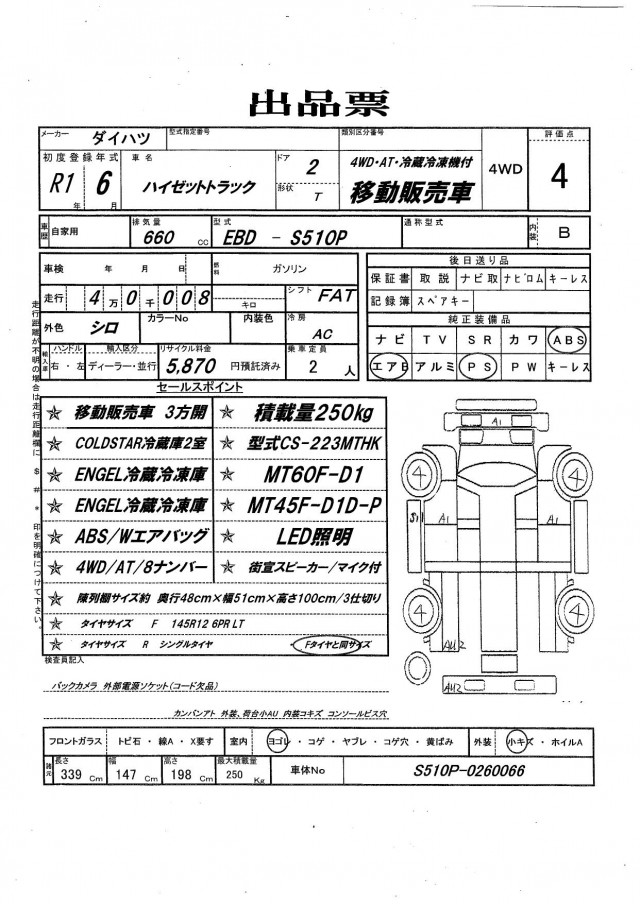 出品票
メーカー ダイハツ 型式指定番号 類別区分番号 4WD 評価点 4
初度登録年式 R1年 6月 車名 ハイゼットトラック ドア 2 形状 T 4WD・AT・冷蔵冷凍機付 移動販売車
車歴 自家用 排気量 660 cc 型式 EBD － S510P 通称型式 内装 B
車検 年 月 日 燃料 ガソリン
走行 4万0千008 キロ シフト FAT
外色 シロ カラーNo 内装色 冷房 AC
輸入車 ハンドル 右・左 輸入区分 ディーラー・並行 リサイクル料金 5,870 円預託済み 乗車定員 2 人
後日送り品
保証書 取説 ナビ取 ナビロム キーレス
記録簿 スペアキー
純正装備品
ナビ TV SR カワ ABS
エアB アルミ PS PW キーレス
走行距離が不明の場合は走行距離欄に $ # * 印を明確につけて下さい。
セールスポイント
☆ 移動販売車 3方開 ☆ 積載量250kg
☆ COLDSTAR冷蔵庫2室 ☆ 型式CS-223MTHK
☆ ENGEL冷蔵冷凍庫 ☆ MT60F-D1
☆ ENGEL冷蔵冷凍庫 ☆ MT45F-D1D-P
☆ ABS/Wエアバッグ ☆ LED照明
☆ 4WD/AT/8ナンバー ☆ 街宣スピーカー/マイク付
☆ 陳列棚サイズ約 奥行48cm×幅51cm×高さ100cm/3仕切り
☆ タイヤサイズ F 145R12 6PR LT
☆ タイヤサイズ R シングルタイヤ Fタイヤと同サイズ
A1
4 4
S1 A1 A1
4 4
AU2
AU2
検査員記入
バックカメラ 外部電源ソケット(コード欠品)
カンバンアト 外装、荷台小AU 内装コキズ コンソールビス穴
フロントガラス トビ石・線A・X要す 室内 ヨゴレ・コゲ・ヤブレ・コゲ穴・黄ばみ 外装 小キズ・ホイルA
諸元 長さ 339 Cm 幅 147 Cm 高さ 198 Cm 最大積載量 250 Kg 車体No S510P-0260066